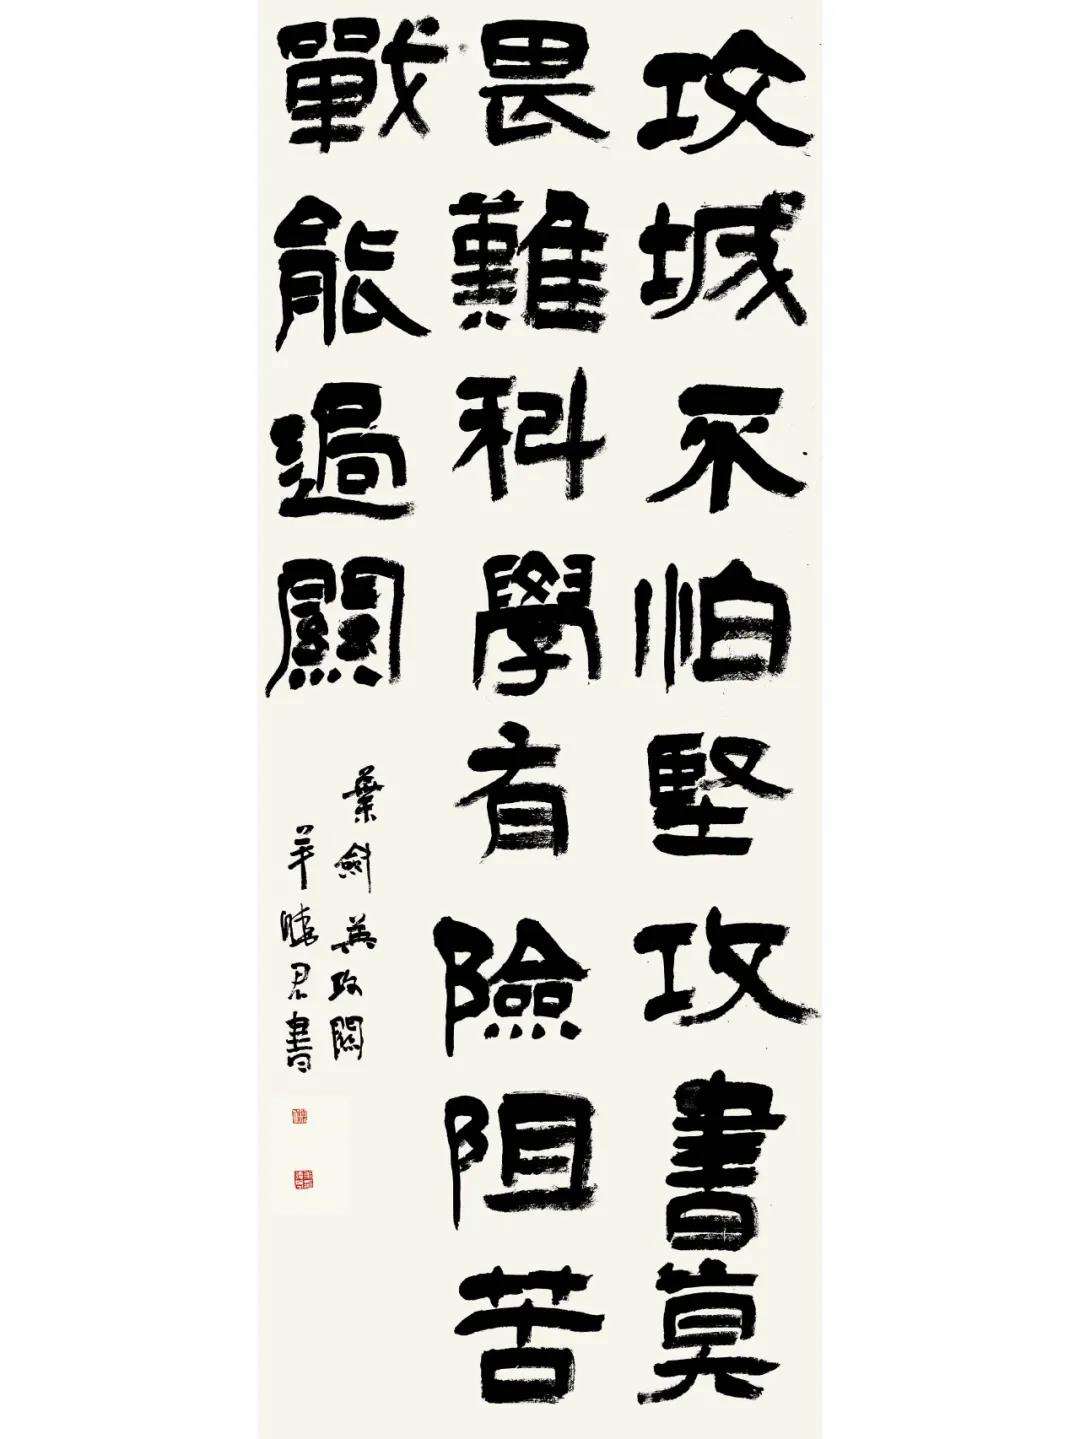 攻城不怕堅攻書莫
畏難科學有險阻苦
戰能過關
葉劍英攻關
羊曉君書